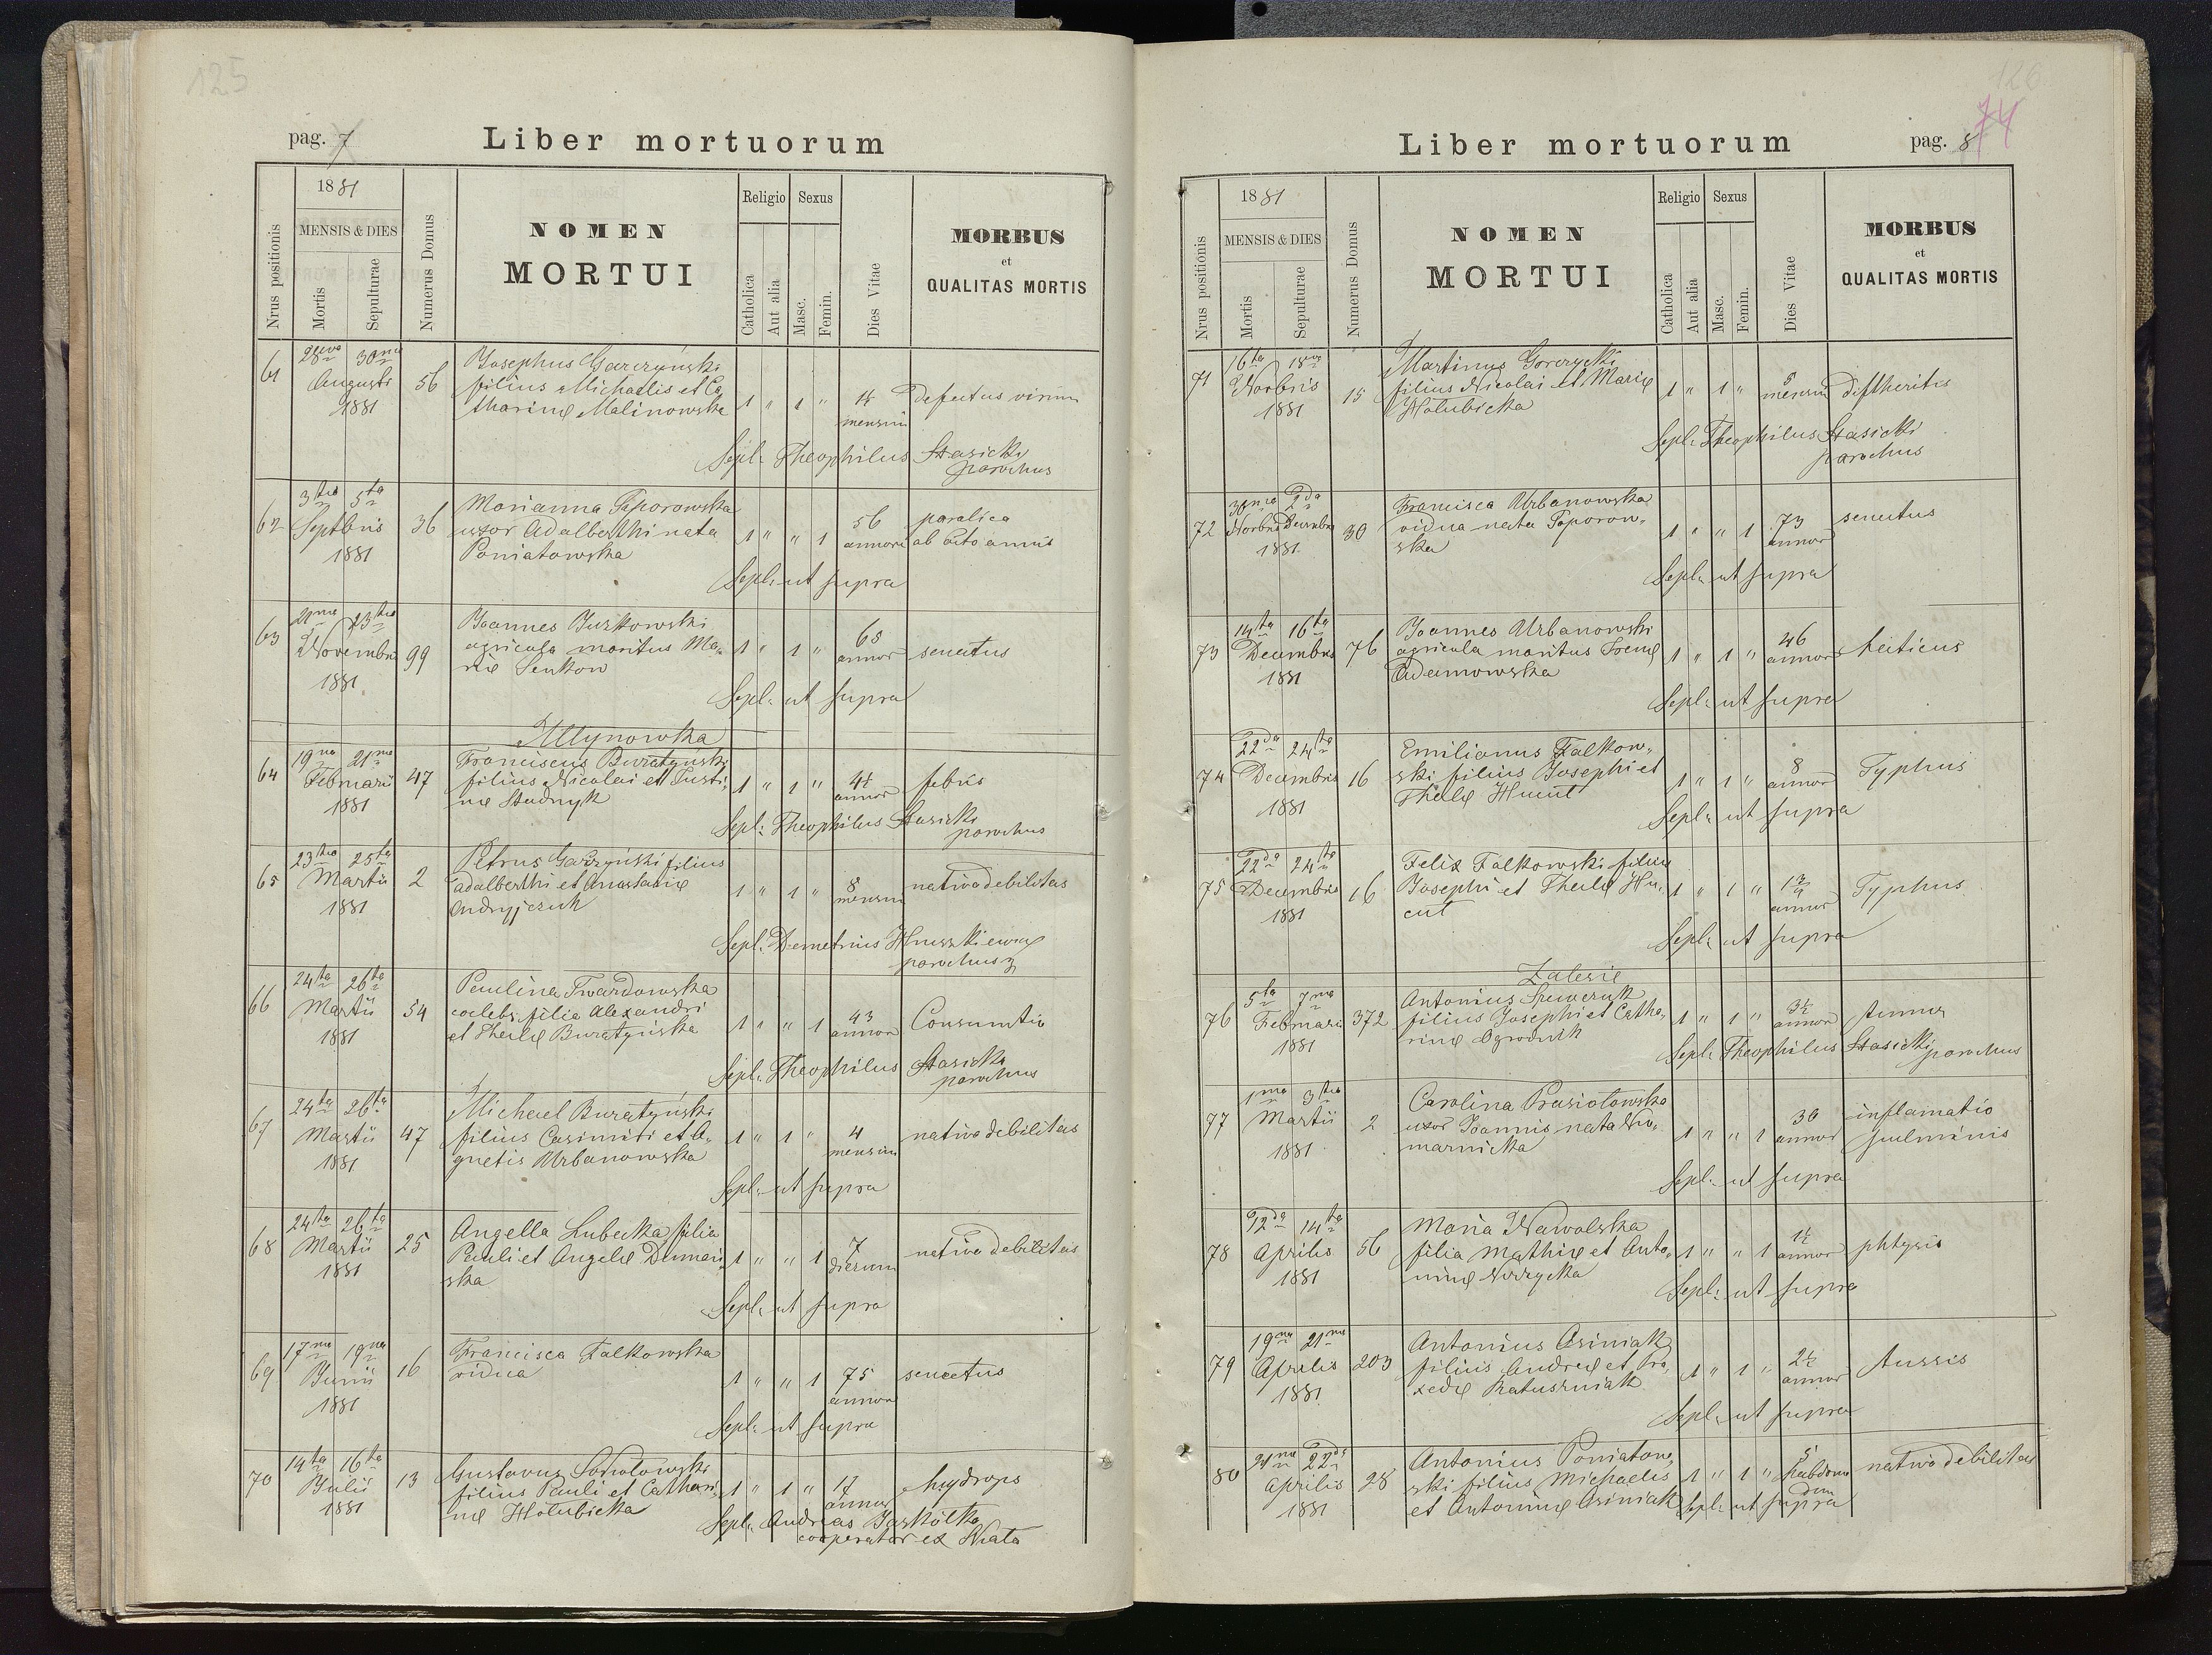 125
pag. 7
Liber mortuorum
1881
MENSIS & DIES
Nrus positionis
Mortis
Sepulturae
Numerus Domus
NOMEN
MORTUI
Religio
Sexus
Catholica
Aut alia
Masc.
Femin.
Dies Vitae
MORBUS
et
QUALITAS MORTIS
61
28va 30ma
Augusti
1881
56
Josephus Garczyński
filius Michaelis et Ca
tharinę Malinowska
1 " 1 "
mensium
defectus virium
Sepl: Theophilus Stasicki
parochus
62
3tia 5ta
Septbris
1881
36
Marianna Toporowska
uxor Adalberthi nata
Poniatowska
1 " " 1
56
annor
paralica
ab octo annis
Sepl: ut supra
63
21ma 23tia
Novembris
1881
99
Joannes Jurkowski
agricola maritus Ma-
rię Senkow
1 " 1 "
65
annor
senectus
Sepl: ut supra
Młynowka
64
19na 21ma
Februarii
1881
47
Franciscus Buratyński
filius Nicolai et Justi-
nę Studnyk
1 " 1 "
4½
annor
febris
Sepl: Theophilus Stasicki
parochus
65
23tia 25ta
Martii
1881
2
Petrus Garzyński filius
adalberthi et Anastasię
Andryjczuk
1 " 1 "
8
mensium
nativa debilitas
Sepl: Demetrius Huszkiewicz
parochus
66
24ta 26ta
Martii
1881
54
Paulina Twardowska
coelebs filia Alexandri
et Theclę Buratyńska
1 " " 1
43
annor
Consumtio
Sepl: Theophilus Stasicki
parochus
67
24ta 26ta
Martii
1881
47
Michael Buratyński
filius Casimiri et A-
gnetis Urbanowska
1 " 1 "
4
mensium
nativa debilitas
Sepl: ut supra
68
24ta 26ta
Martii
1881
25
Angella Lubecka filia
Pauli et Angelę Duman-
ska
1 " " 1
7
dierum
nativa debilitas
Sepl: ut supra
69
17ma 19na
Junii
1881
16
Francisca Falkowska
vidua
1 " " 1
75
annor
senectus
Sepl: ut supra
70
14ta 16ta
Julii
1881
13
Gustavus Sokołowski
filius Pauli et Cathari-
nę Hołubicka
1 " 1 "
17
annor
hydrops
Sepl: Andreas Jaskółka
cooperator ex Krata
126
74
Liber mortuorum
pag. 8
1881
MENSIS & DIES
Nrus positionis
Mortis
Sepulturae
Numerus Domus
NOMEN
MORTUI
Religio
Sexus
Catholica
Aut alia
Masc.
Femin.
Dies Vitae
MORBUS
et
QUALITAS MORTIS
71
16ta 18va
Novbris
1881
15
Martinus Gorczycki
filius Nicolai et Marię
Hołubicka
1 " 1 "
5
mensium
diftheritis
Sepl: Theophilus Stasicki
parochus
72
30ma 2da
Novbris Decembris
1881
30
Francisca Urbanowska
vidua nata Toporow-
ska
1 " " 1
73
annor
senectus
Sepl: ut supra
73
14ta 16ta
Decembris
1881
76
Joannes Urbanowski
agricola maritus Irenę
Adamowska
1 " 1 "
46
annor
hecticus
Sepl: ut supra
74
22da 24ta
Decembris
1881
16
Emilianus Falkow-
ski filius Josephi et
Theclę Hucut
1 " 1 "
8
annor
Typhus
Sepl: ut supra
75
22da 24ta
Decembris
1881
16
Felix Falkowski filius
Josephi et Theclę Hu-
cut
1 " 1 "
1¾
annor
Typhus
Sepl: ut supra
Zalesie
76
5ta 7ma
Februarii
1881
372
Antonius Szewczuk
filius Josephi et Catha-
rinę Ogrodnik
1 " 1 "
3½
annor
Sepl: Theophilus Stasicki parochus
77
1ma 3tia
Martii
1881
2
Carolina Prusiołowska
uxor Joannis nata Ko-
marnicka
1 " " 1
30
annor
inflamatio
pulminis
Sepl: ut supra
78
12da 14ta
Aprilis
1881
56
Maria Nawolska
filia Mathię et Anto-
ninę Norzycka
1 " " 1
1½
annor
phtysis
Sepl: ut supra
79
19na 21ma
Aprilis
1881
203
Antonius Osiniak
filius Andreę et Pra-
xedę Ratuszniak
1 " 1 "
2½
annor
tussis
Sepl: ut supra
80
21ma 22da
Aprilis
1881
28
Antonius Poniatow-
ski filius Michaelis
et Antoninę Osiniak
1 " 1 "
5
hebdoma
dum
nativa debilitas
Sepl: ut supra